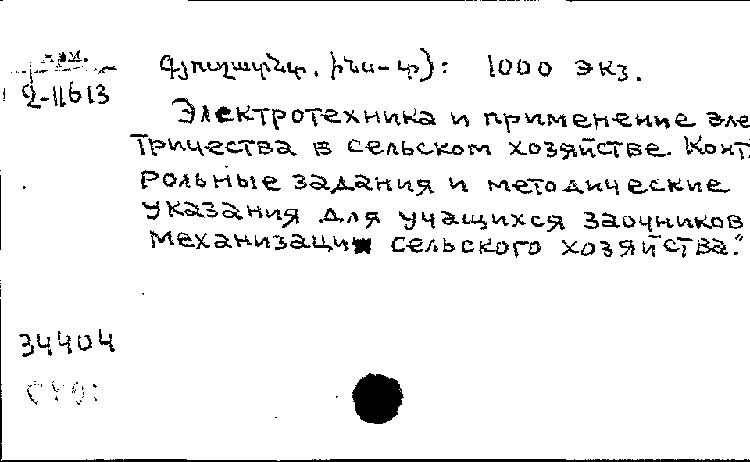 арм.
2-11613
Գյուղատնտ. ինս-տ): 1000 экз.
Электротехника и применение элек
тричества в сельском хозяйстве. Конт
рольные задания и методические
указания для учащихся заочников
механизации сельского хозяйства."
34404